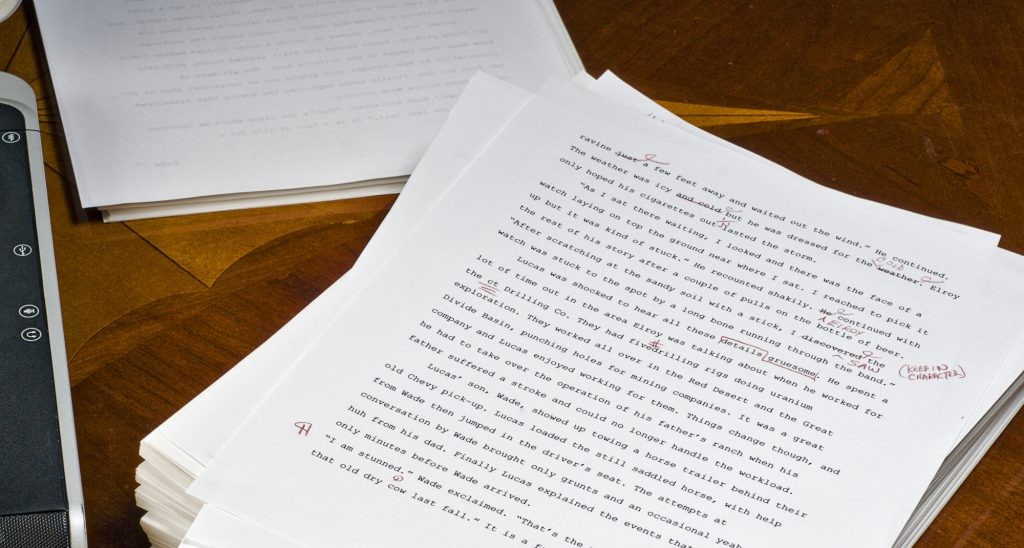 ravine just a few feet away and waited out the wind." He continued.
The weather was icy and cold but he was dressed for the weather. Elroy
COLD
only hoped his cigarettes outlasted the storm.
"As I sat there waiting, I looked and there was the face of a
watch laying on top the ground near where I sat. I reached to pick it
up but it was kind of stuck." He recounted shakily. He continued with
ELROY
the rest of his story after a couple of pulls on the bottle of beer.
"After scratching at the sandy soil with a stick, I discovered the
SAW
(KEEP IN CHARACTER)
watch was stuck to the spot by a long bone running through the band."
Lucas was shocked to hear all these details gruesome. He spent a
lot of time out in the area Elroy was talking about when he worked for
the ct Drilling Co. They had fivedrilling rigs doing uranium
#
exploration. They worked all over in the Red Desert and the Great
Divide Basin, punching holes for mining companies. It was a great
company and Lucas enjoyed working for them. Things change though, and
he had to take over the operation of his father's ranch when his
father suffered a stroke and could no longer handle the workload.
Lucas' son, Wade, showed up towing a horse trailer behind their
old Chevy pick-up. Lucas loaded the still saddled horse, with help
from Wade then jumped in the driver's seat. The attempts at
conversation by Wade brought only grunts and an occasional yeah
huh from his dad. Finally Lucas explained the events that
only minutes before Wade arrived.
"I am stunned." Wade exclaimed. "That's the
that old dry cow last fall." It is a f